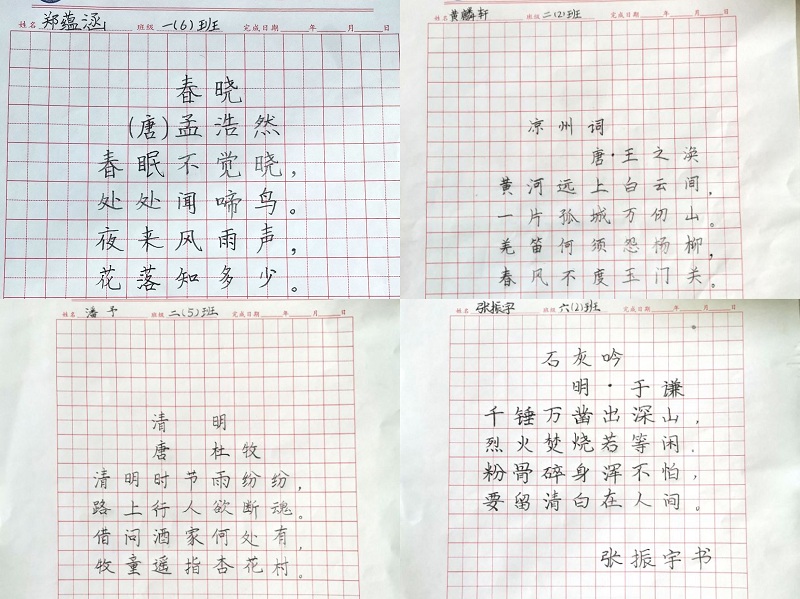 姓名 郑蕴涵 班级 一(6)班 完成日期 年 月 日
春晓
(唐)孟浩然
春眠不觉晓,
处处闻啼鸟。
夜来风雨声,
花落知多少。
姓名 黄麟轩 班级 二(2)班 完成日期 年 月 日
凉州词
唐·王之涣
黄河远上白云间,
一片孤城万仞山。
羌笛何须怨杨柳,
春风不度玉门关。
姓名 潘予 班级 二(5)班 完成日期 年 月 日
清 明
唐 杜牧
清明时节雨纷纷,
路上行人欲断魂。
借问酒家何处有,
牧童遥指杏花村。
姓名 张振宇 班级 六(2)班 完成日期 年 月 日
石灰吟
明·于谦
千锤万凿出深山,
烈火焚烧若等闲.
粉骨碎身浑不怕,
要留清白在人间。
张振宇书